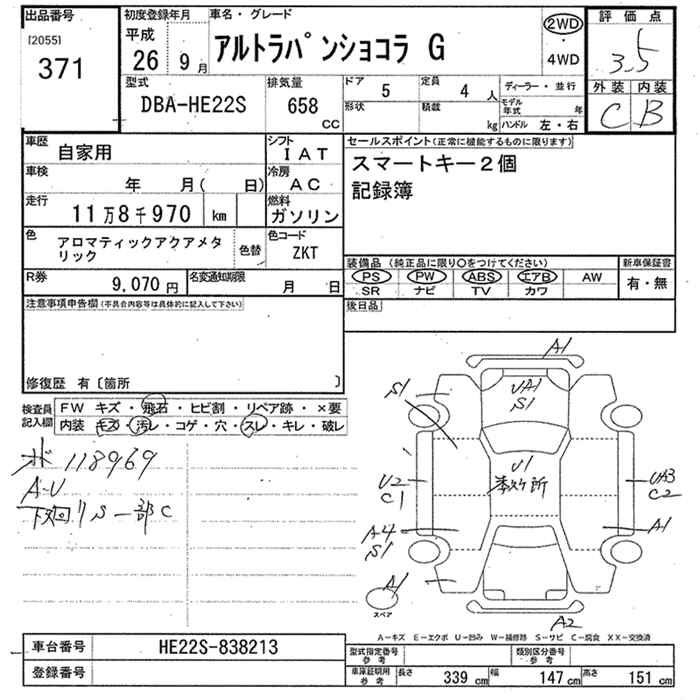 出品番号
[2055]
371
初度登録年月
平成
26年 9月
車名・グレード
アルトラパンショコラ G
2WD
・
4WD
評価点
3.5
外装 内装
C B
型式
DBA-HE22S
排気量
658
cc
ドア 5
形状
定員 4 人
積載 kg
ディーラー・並行
モデル年式 年
ハンドル 左・右
車歴
自家用
シフト
IAT
車検
年 月( 日)
冷房
AC
走行
11万8千970 km
燃料
ガソリン
色
アロマティックアクアメタ
リック
色替
色コード
ZKT
R券
9,070 円
名変通知期限
月 日
セールスポイント(正常に機能するものに限ります)
スマートキー2個
記録簿
装備品 (純正品に限り○をつけてください)
PS PW ABS エアB AW
SR ナビ TV カワ
新車保証書
有・無
後日品
注意事項申告欄(不具合内容等は具体的に記入して下さい)
修復歴 有〔箇所 〕
検査員
記入欄
FW キズ・飛石・ヒビ割・リペア跡・×要
内装 キズ・汚レ・コゲ・穴・スレ・キレ・破レ
118969
A-U
下回リS一部C
A1
S1
UA1
S1
U1
U2
C1
UA3
C2
A4
S1
A1
A1
スペア
A2
A-キズ E-エクボ U-凹み W-補修跡 S-サビ C-腐食 XX-交換済
車台番号
HE22S-838213
登録番号
型式指定番号
参考
類別区分番号
参考
車庫証明用
参考
長さ 339 cm
幅 147 cm
高さ 151 cm